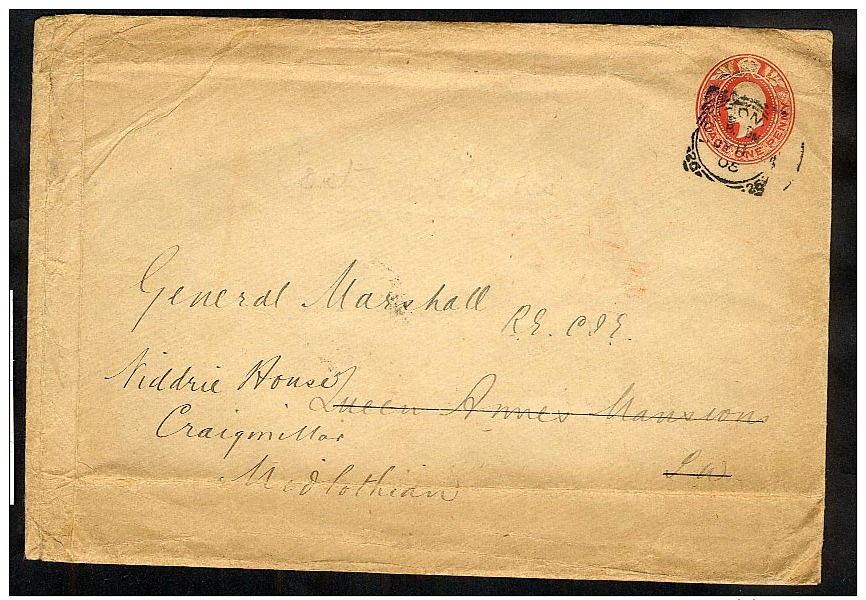 POSTAGE ONE PENNY
General Marshall
R.E. C.I.E.
Niddrie House
Queen Anne's Mansions
Craigmillar
S.W
Midlothian